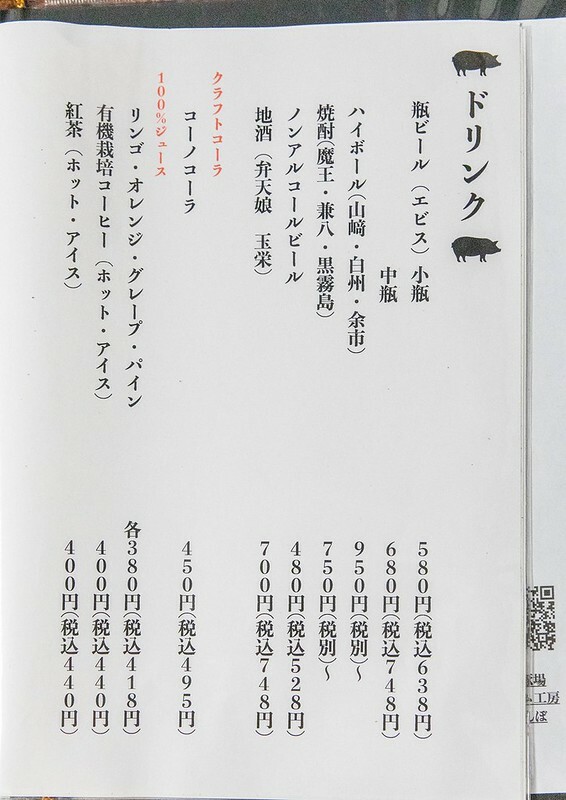 ドリンク
瓶ビール（エビス）小瓶 580円(税込638円)
中瓶 680円(税込748円)
ハイボール(山﨑・白州・余市) 950円(税別)～
焼酎(魔王・兼八・黒霧島) 750円(税別)～
ノンアルコールビール 480円(税込528円)
地酒（弁天娘 玉栄） 700円(税込748円)
クラフトコーラ
コーノコーラ 450円(税込495円)
100%ジュース
リンゴ・オレンジ・グレープ・パイン 各380円(税込418円)
有機栽培コーヒー（ホット・アイス） 400円(税込440円)
紅茶（ホット・アイス） 400円(税込440円)
場
工房
んぼ